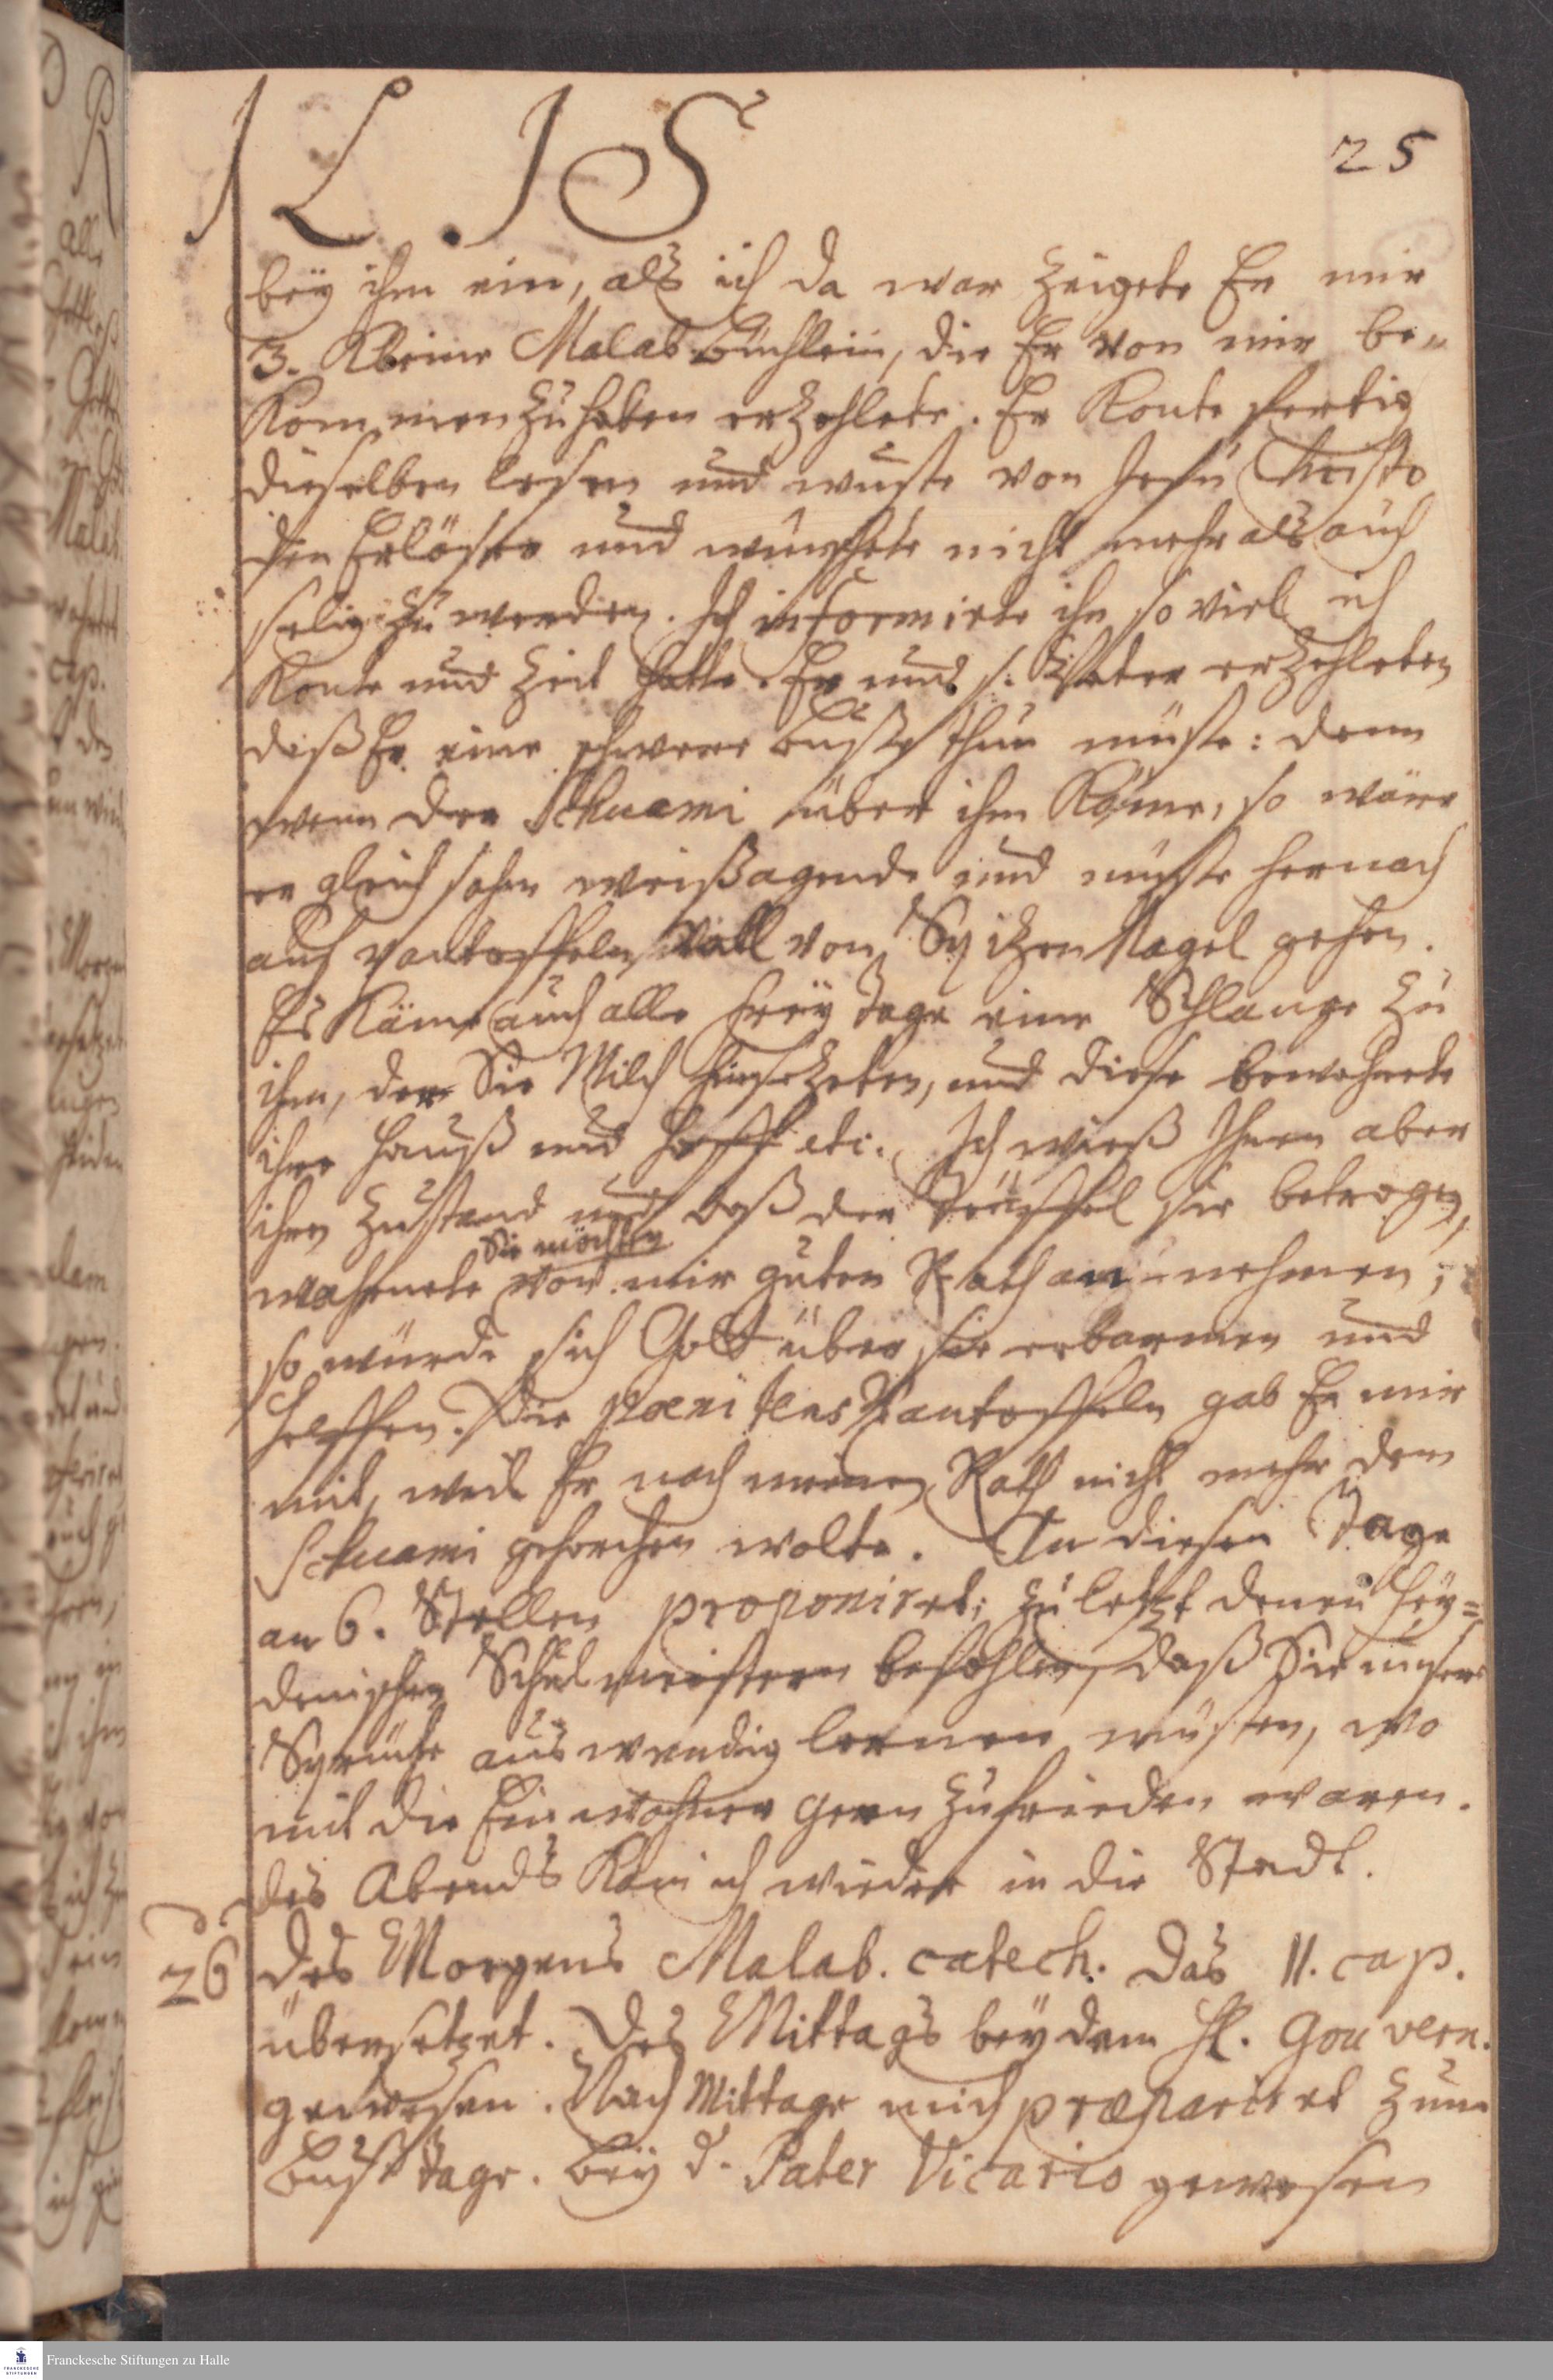 I L I S
25
bey ihm ein, als ich da war zeigete Er mir
3. Kleine Malab. büchlein, die Er von mir be-
kommen zu haben erzehlete. Er konte fertig
dieselben lesen und wuste von Jesu Christo
den Erlöser und wünschete nicht mehr als auch
selig zu werden. Ich informirte ihn so viel ich
konte und Zeit hatte. Er und s. Vater erzehleten
daß Er eine schwere busse thun müste: denn
wenn der Schuami über ihm käme, so wäre
er gleich sahm weißagende und müste hernach
auf pantoffeln voll von Spitzen Nagel gehen.
Es käme auch alle Freytage eine Schlange zu
ihm, der Sie Milch hinsezeten, und diese bewahrete
ihre Hauß und Hoff etc. Ich wieß Ihnen aber
ihren Zustand und daß der Teuffel sie betrogen,
Sie möchten
wahrnete von mir guten Rath annehmen;
so würde sich Gott über sie erbarmen und
helffen. Die poenitens Pantoffeln gab Er mir
mit, weil Er nach meinen Rath nicht mehr dem
Schuami gehorchen wolte. In diesen Tage
an 6. Stellen proponiret; zuletzt denen Hey-
denischen Schulmeistern befohlen, daß Sie unsere
Sprüche auswendig lernen müsten, wo
mit die Einwohner gern zufrieden waren.
des Abends kam ich wieder in die Stadt.
26 des Morgens Malab. catech. das 11. cap.
übersetzet. Des Mittags bey dem H. Gouvern.
gewesen. Nach Mittage mich præpariret zum
Busstage. bey d. Pater Vicario gewesen
Franckesche Stiftungen zu Halle